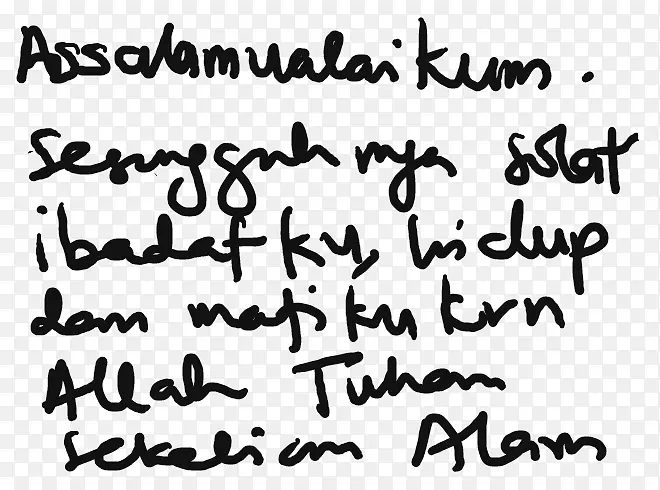 Assalamualaikum.
Sesungguhnya solat
ibadatku, hidup
dan matiku krn
Allah Tuhan
sekelian Alam